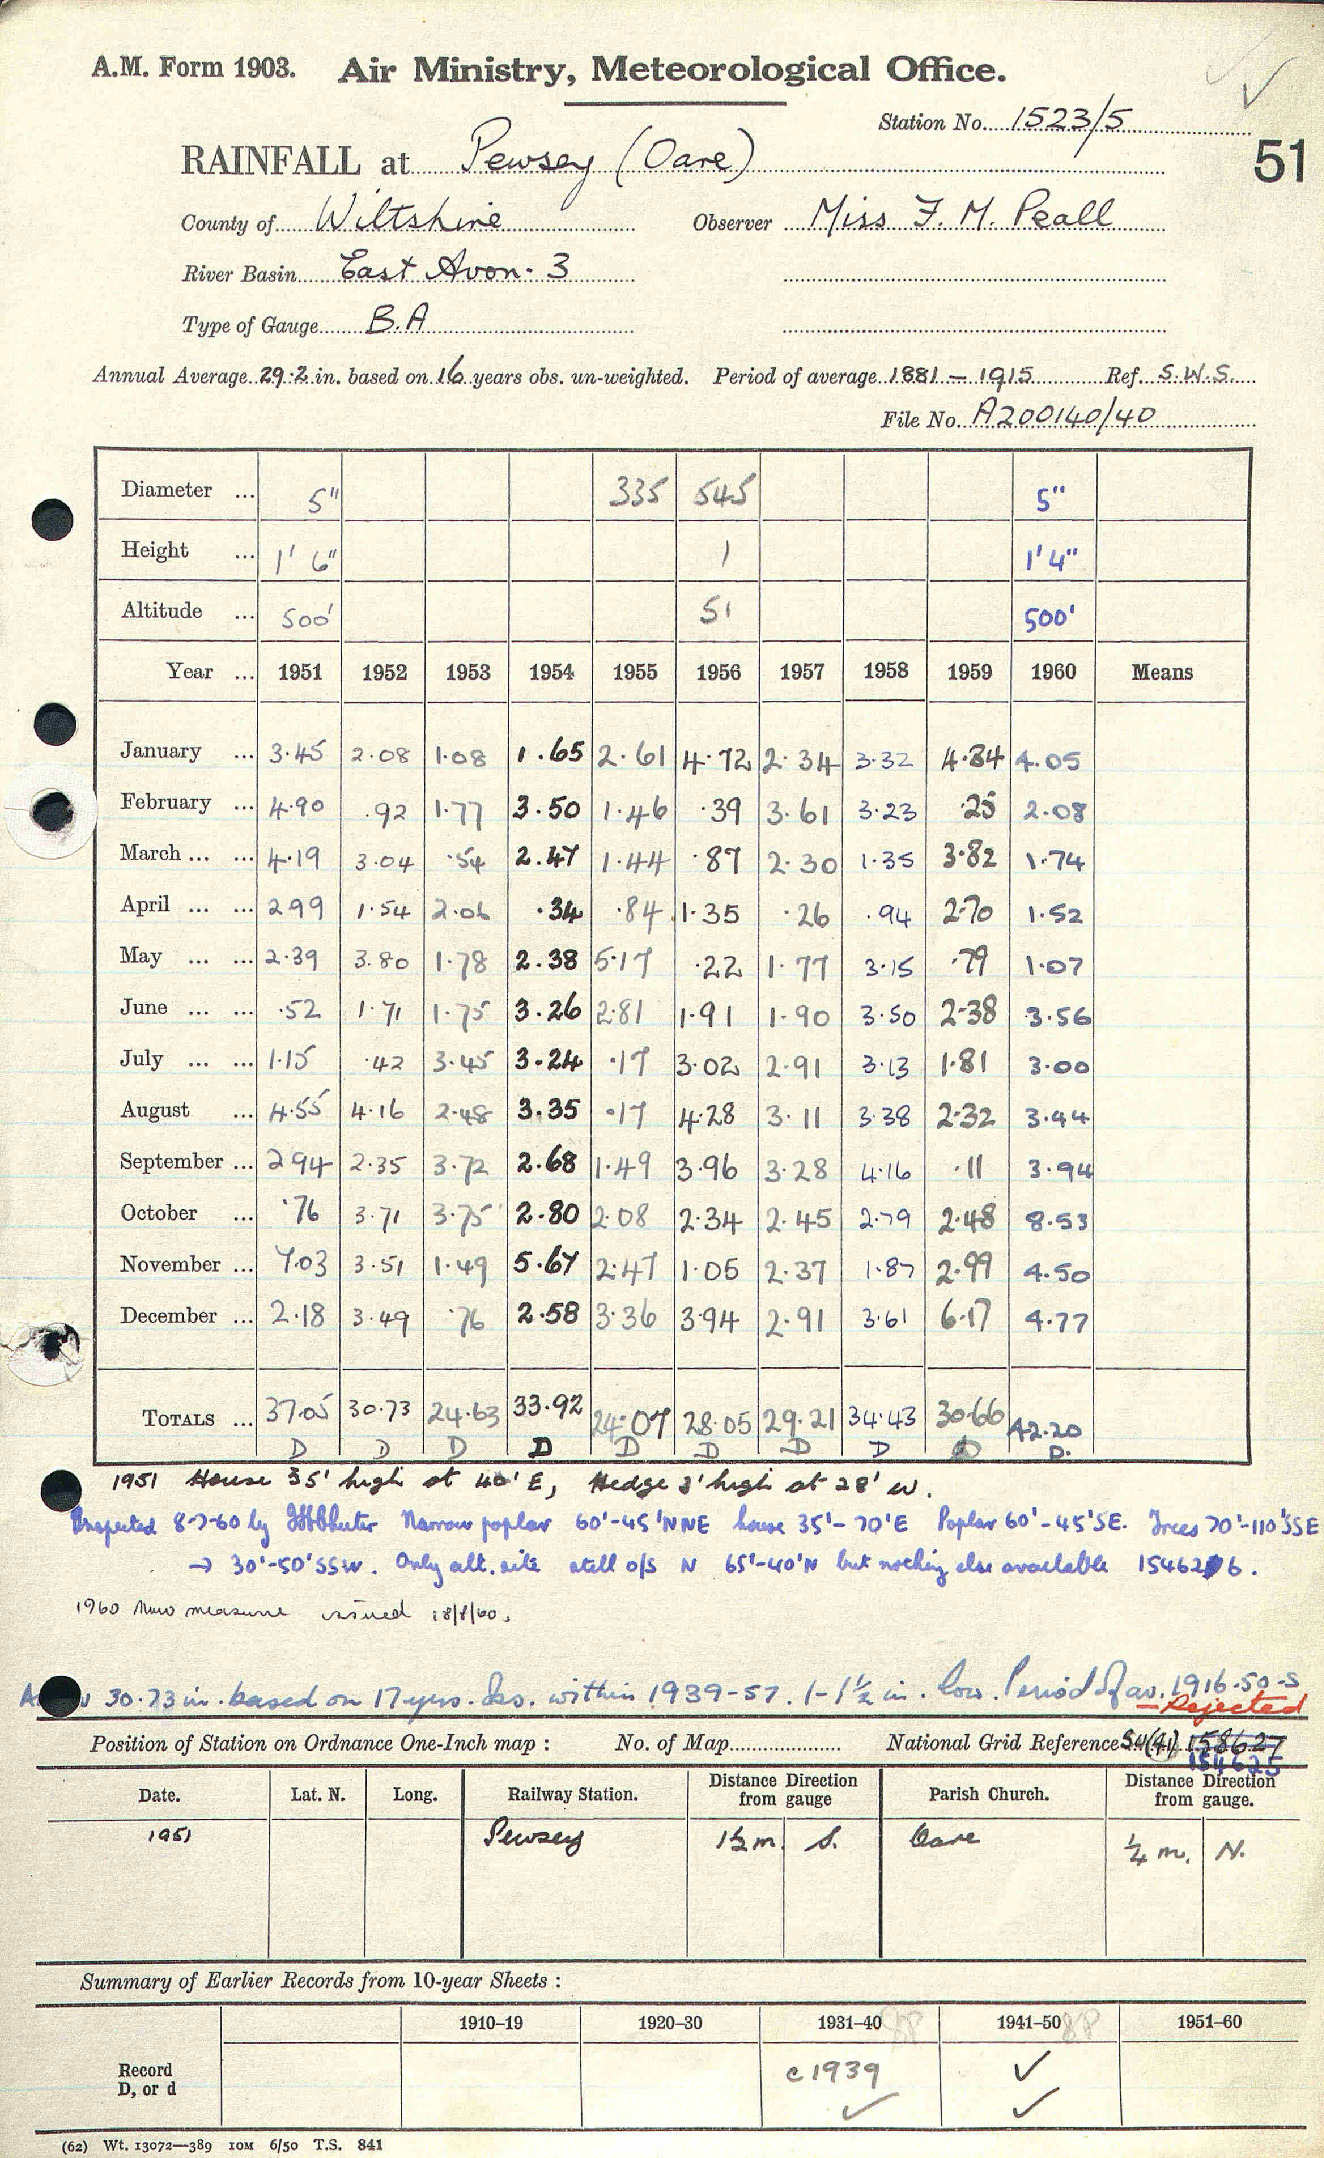 A.M. Form 1903. Air Ministry, Meteorological Office.
Station No. 1523/5
RAINFALL at Pewsey (Oare)
51
County of Wiltshire Observer Miss F. M. Peall
River Basin East Avon - 3
Type of Gauge B.A
Annual Average 29.2 in. based on 16 years obs. un-weighted. Period of average 1881 – 1915 Ref. S.W.S.
File No. A200140/40
Diameter ... 5" 335 545 5"
Height ... 1' 6" 1 1'4"
Altitude ... 500' 51 500'
Year ... 1951 1952 1953 1954 1955 1956 1957 1958 1959 1960 Means
January ... 3.45 2.08 1.08 1.65 2.61 4.72 2.34 3.32 4.84 4.05
February ... 4.90 .92 1.77 3.50 1.46 .39 3.61 3.23 .25 2.08
March ... ... 4.19 3.04 .54 2.47 1.44 .87 2.30 1.35 3.82 1.74
April ... ... 2.99 1.54 2.06 .34 .84 1.35 .26 .94 2.70 1.52
May ... ... 2.39 3.80 1.78 2.38 5.17 .22 1.77 3.15 .79 1.07
June ... ... .52 1.71 1.75 3.26 2.81 1.91 1.90 3.50 2.38 3.56
July ... ... 1.15 .42 3.45 3.24 .17 3.02 2.91 3.13 1.81 3.00
August ... 4.55 4.16 2.48 3.35 .17 4.28 3.11 3.38 2.32 3.44
September ... 2.94 2.35 3.72 2.68 1.49 3.96 3.28 4.16 .11 3.94
October ... .76 3.71 3.75 2.80 2.08 2.34 2.45 2.79 2.48 8.53
November ... 7.03 3.51 1.49 5.67 2.47 1.05 2.37 1.87 2.99 4.50
December ... 2.18 3.49 .76 2.58 3.36 3.94 2.91 3.61 6.17 4.77
TOTALS ... 37.05 30.73 24.63 33.92 24.07 28.05 29.21 34.43 30.66 42.20
D D D D D D D D D D.
1951 House 35' high at 40' E, Hedge 3' high at 28' W.
Inspected 8-7-60 by Narrow poplar 60'-45'NNE house 35'-70'E Poplar 60'-45'SE. Trees 70'-110'SSE
→ 30'-50'SSW. Only alt. site still o/s N 65'-40'N but nothing else available 154626.
1960 New measure issued 18/8/60.
30.73 in. based on 17 yrs. obs. within 1939-57. 1-1½ in. low. Period of av. 1916-50-S
– Rejected
Position of Station on Ordnance One-Inch map : No. of Map National Grid Reference SU(41) 158627
154625
Date. Lat. N. Long. Railway Station. Distance Direction from gauge Parish Church. Distance Direction from gauge.
1951 Pewsey 1½ m. S. Oare ¼ m. N.
Summary of Earlier Records from 10-year Sheets :
1910–19 1920–30 1931–40 1941–50 1951–60
Record D, or d c1939 ✓ ✓ ✓
(62) Wt. 13072—389 10M 6/50 T.S. 841